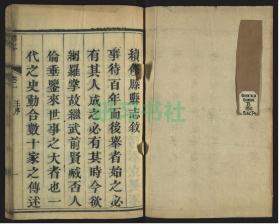 縣志敘
事待百年而後舉者始之必
有其人成之必有其時今欲
網羅掌故繼武前賢臧否人
倫垂鑒來世事之大者也一
代之史動合數十家之傳述
序